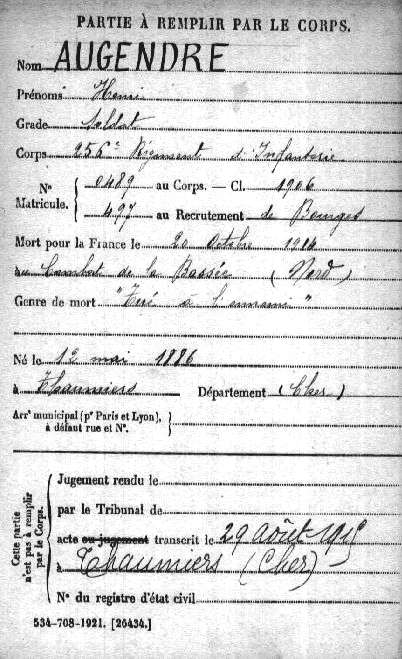 PARTIE À REMPLIR PAR LE CORPS.
Nom AUGENDRE
Prénoms Henri
Grade Soldat
Corps 256e Régiment d'Infanterie
N° Matricule. { 0489 au Corps. — Cl. 1906
497 au Recrutement de Bourges
Mort pour la France le 20 Octobre 1914
au Combat de la Bassée (Nord)
Genre de mort "Tué à l'ennemi"
Né le 12 mai 1886
à Thaumiers Département (Cher)
Arrt municipal (pr Paris et Lyon), à défaut rue et N°. }
Cette partie n'est pas à remplir par le Corps.
Jugement rendu le
par le Tribunal de
acte ou jugement transcrit le 29 août
à Thaumiers (Cher)
N° du registre d'état civil
534-708-1921. [26434.]